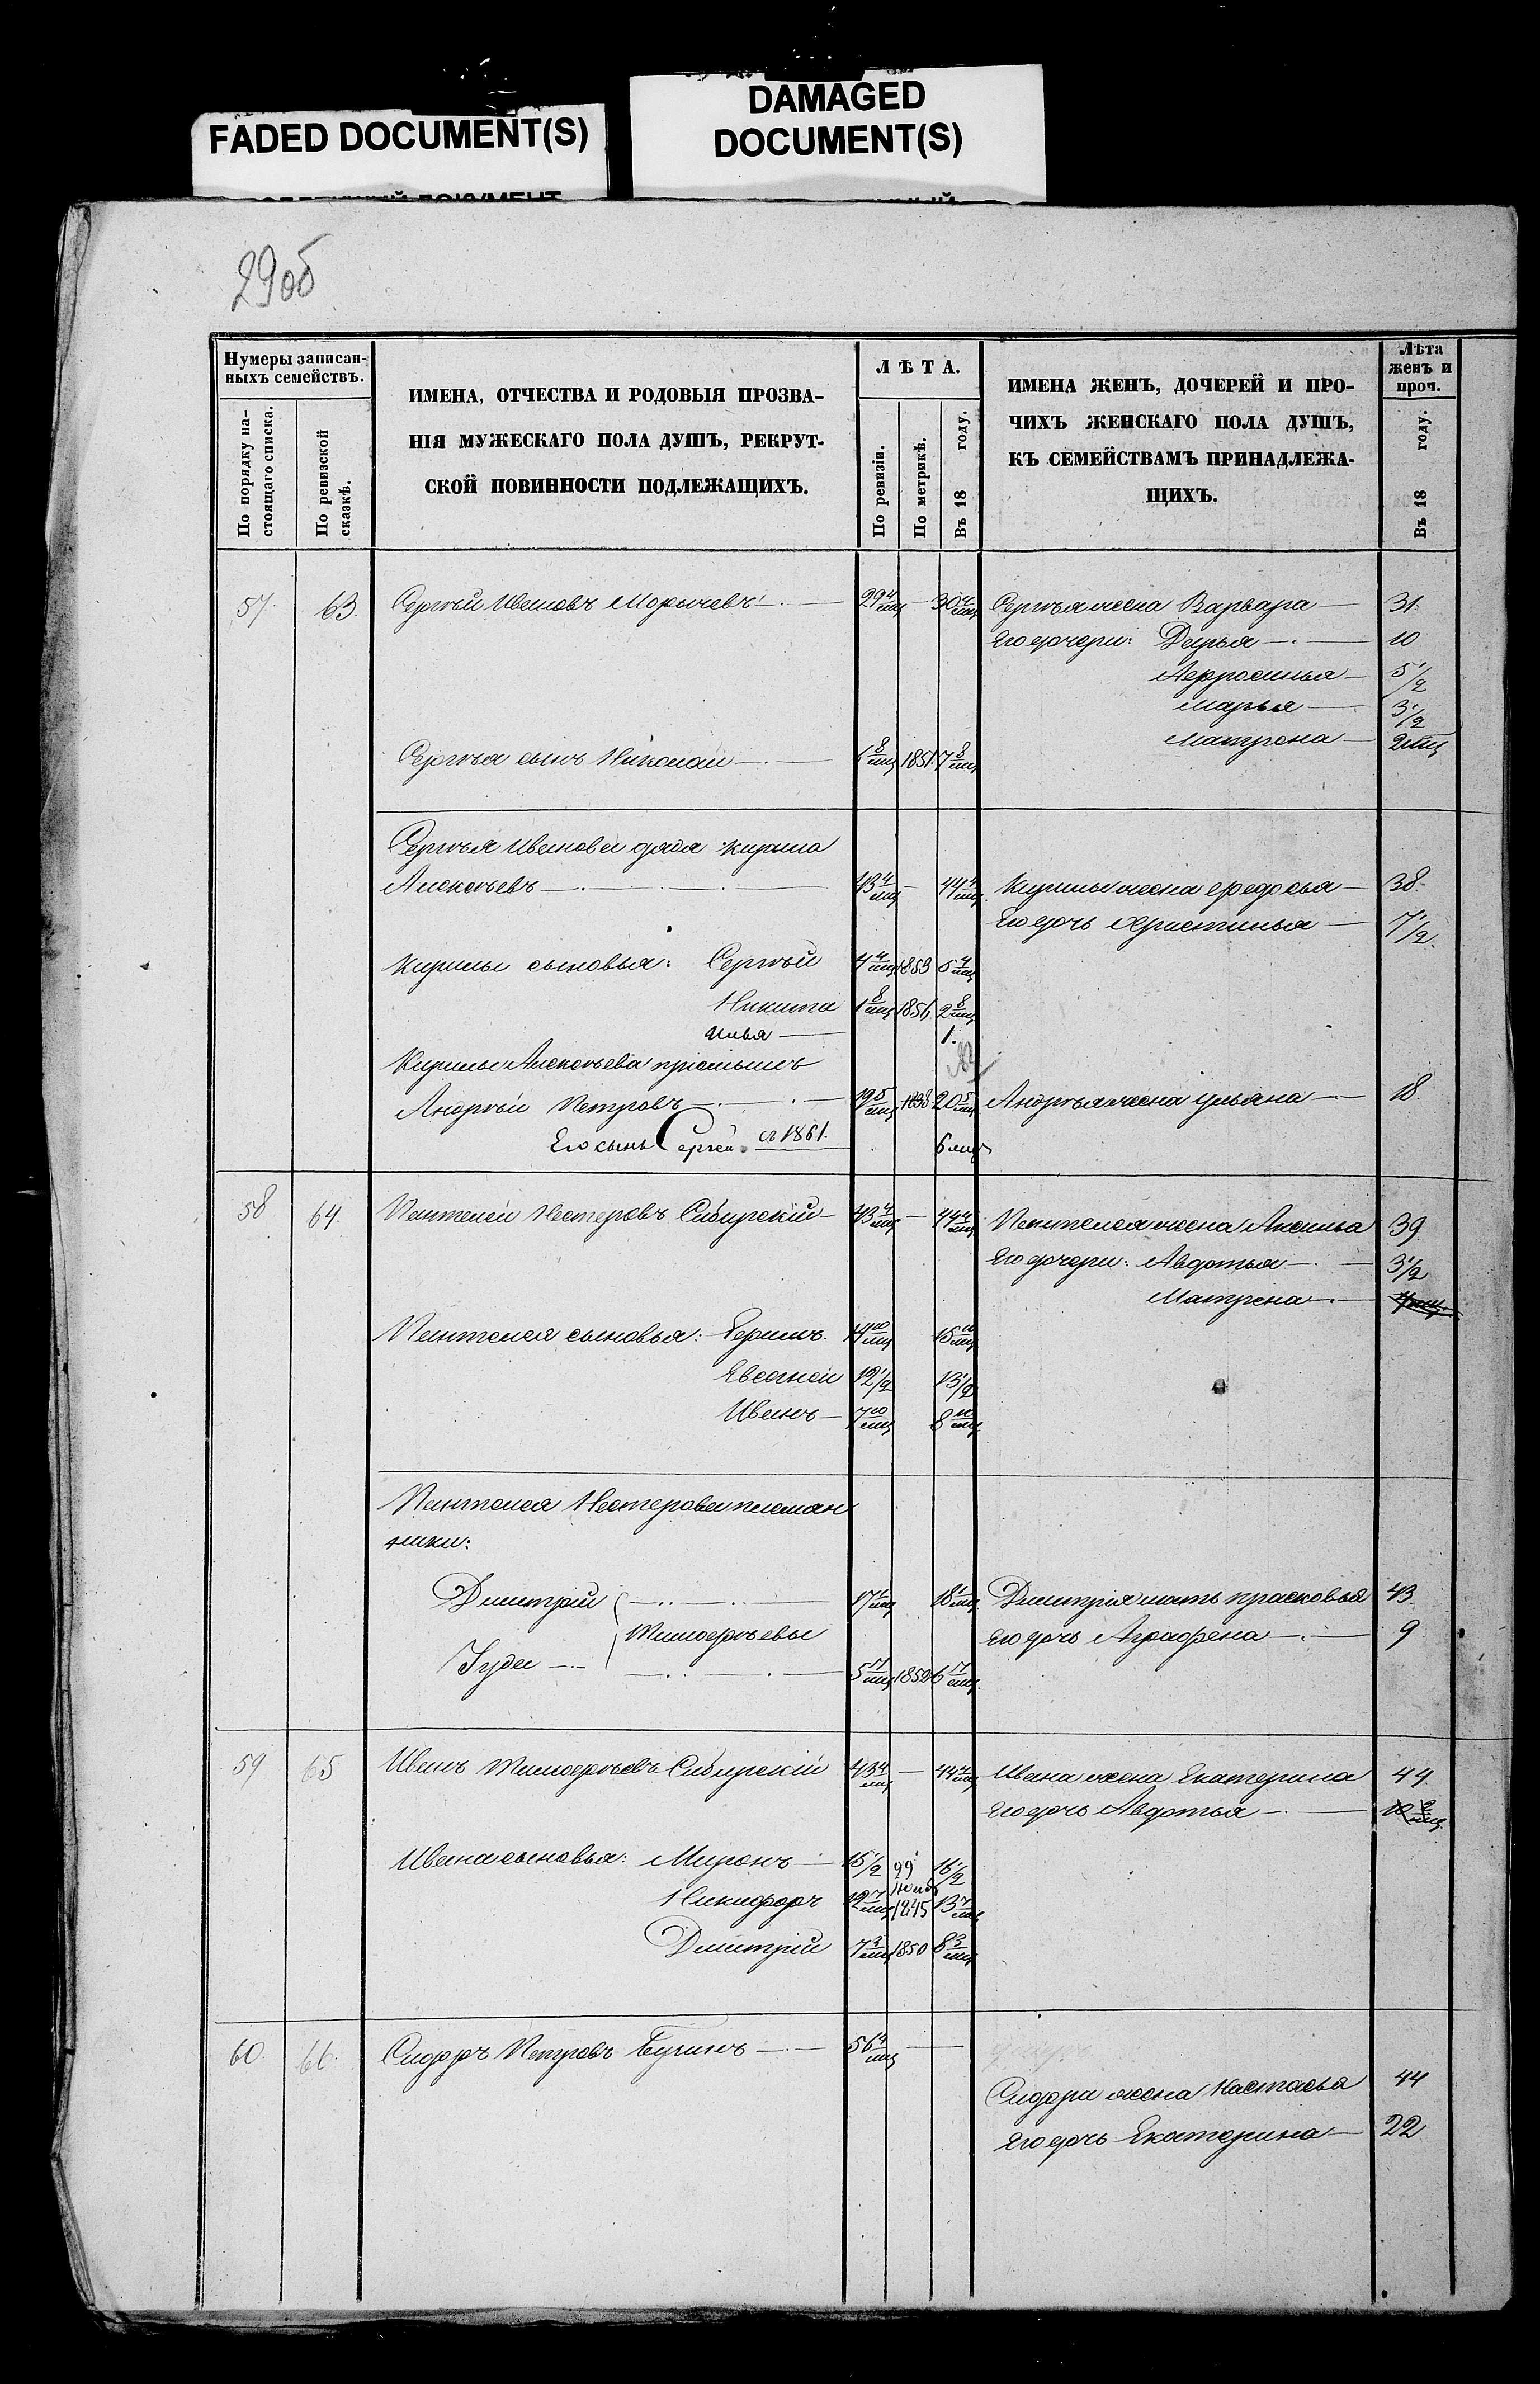 FADED DOCUMENT(S)
DAMAGED
DOCUMENT(S)
29об
Нумеры записан-
ныхъ семействъ.
По порядку на-
стоящаго списка.
По ревизской
сказкѣ.
ИМЕНА, ОТЧЕСТВА И РОДОВЫЯ ПРОЗВА-
НІЯ МУЖЕСКАГО ПОЛА ДУШЪ, РЕКРУТ-
СКОЙ ПОВИННОСТИ ПОДЛЕЖАЩИХЪ.
ЛѢТА.
По ревизіи.
По метрикѣ.
Въ 18 году.
ИМЕНА ЖЕНЪ, ДОЧЕРЕЙ И ПРО-
ЧИХЪ ЖЕНСКАГО ПОЛА ДУШЪ,
КЪ СЕМЕЙСТВАМЪ ПРИНАДЛЕЖА-
ЩИХЪ.
Лѣта
женъ и
проч.
Въ 18 году.
57. 63. Сергѣй Ивановъ Морычевъ 29 4/мц — 30 4/мц Сергѣя жена Варвара 31.
Его дочери: Дарья 10
Аефросинья 5 1/2
Марья 3 1/2
Матрена 2 мц
Сергѣя сынъ Николай 6 8/мц 1851 7 8/мц
Сергѣя Иванова дядя Кирила
Алексѣевъ 43 4/мц — 44 4/мц Кирилы жена Ѳедосья 38.
Его дочь Христинья 7 1/2.
Кирилы сыновья: Сергѣй 4 4/мц 1853 5 4/мц
Никита 1 8/мц 1856 2 8/мц
Илья 1.
Кирилы Алексѣева пріемышъ
Андрѣй Петровъ 19 5/мц 1838 20 5/мц Андрѣя жена Ульяна 18.
Его сынъ Сергей съ 1861. 6 мцъ
58 64. Пантелей Нестеровъ Сибирскій 43 4/мц — 44 4/мц Пантелея жена Аксинья 39
Его дочери: Авдотья 3 1/2
Матрена 4 мц.
Пантелея сыновья: Ермилъ 14 10/мц 15 10/мц
Евсегней 12 1/2 13 1/2
Иванъ 7 10/мц 8 10/мц
Пантелея Нестерова племян
ники:
Дмитрій 17 1/мц 18 1/мц Дмитрія мать Прасковья 43
Тимофѣевы Его дочь Аграфена 9
Іуда 5 7/мц 1852 6 7/мц
59 65 Иванъ Тимофѣевъ Сибирскій 43 4/мц — 44 4/мц Ивана жена Екатерина 44.
Его дочь Авдотья
Ивана сыновья: Миронъ 15 1/2 16 1/2
Никифоръ 12 7/мц 1845 13 7/мц
Дмитрій 7 3/мц 1850 8 3/мц
60. 66. Сидоръ Петровъ Бугинъ 56 4/мц — —
Сидора жена Настасья 44
Его дочь Екатерина 22